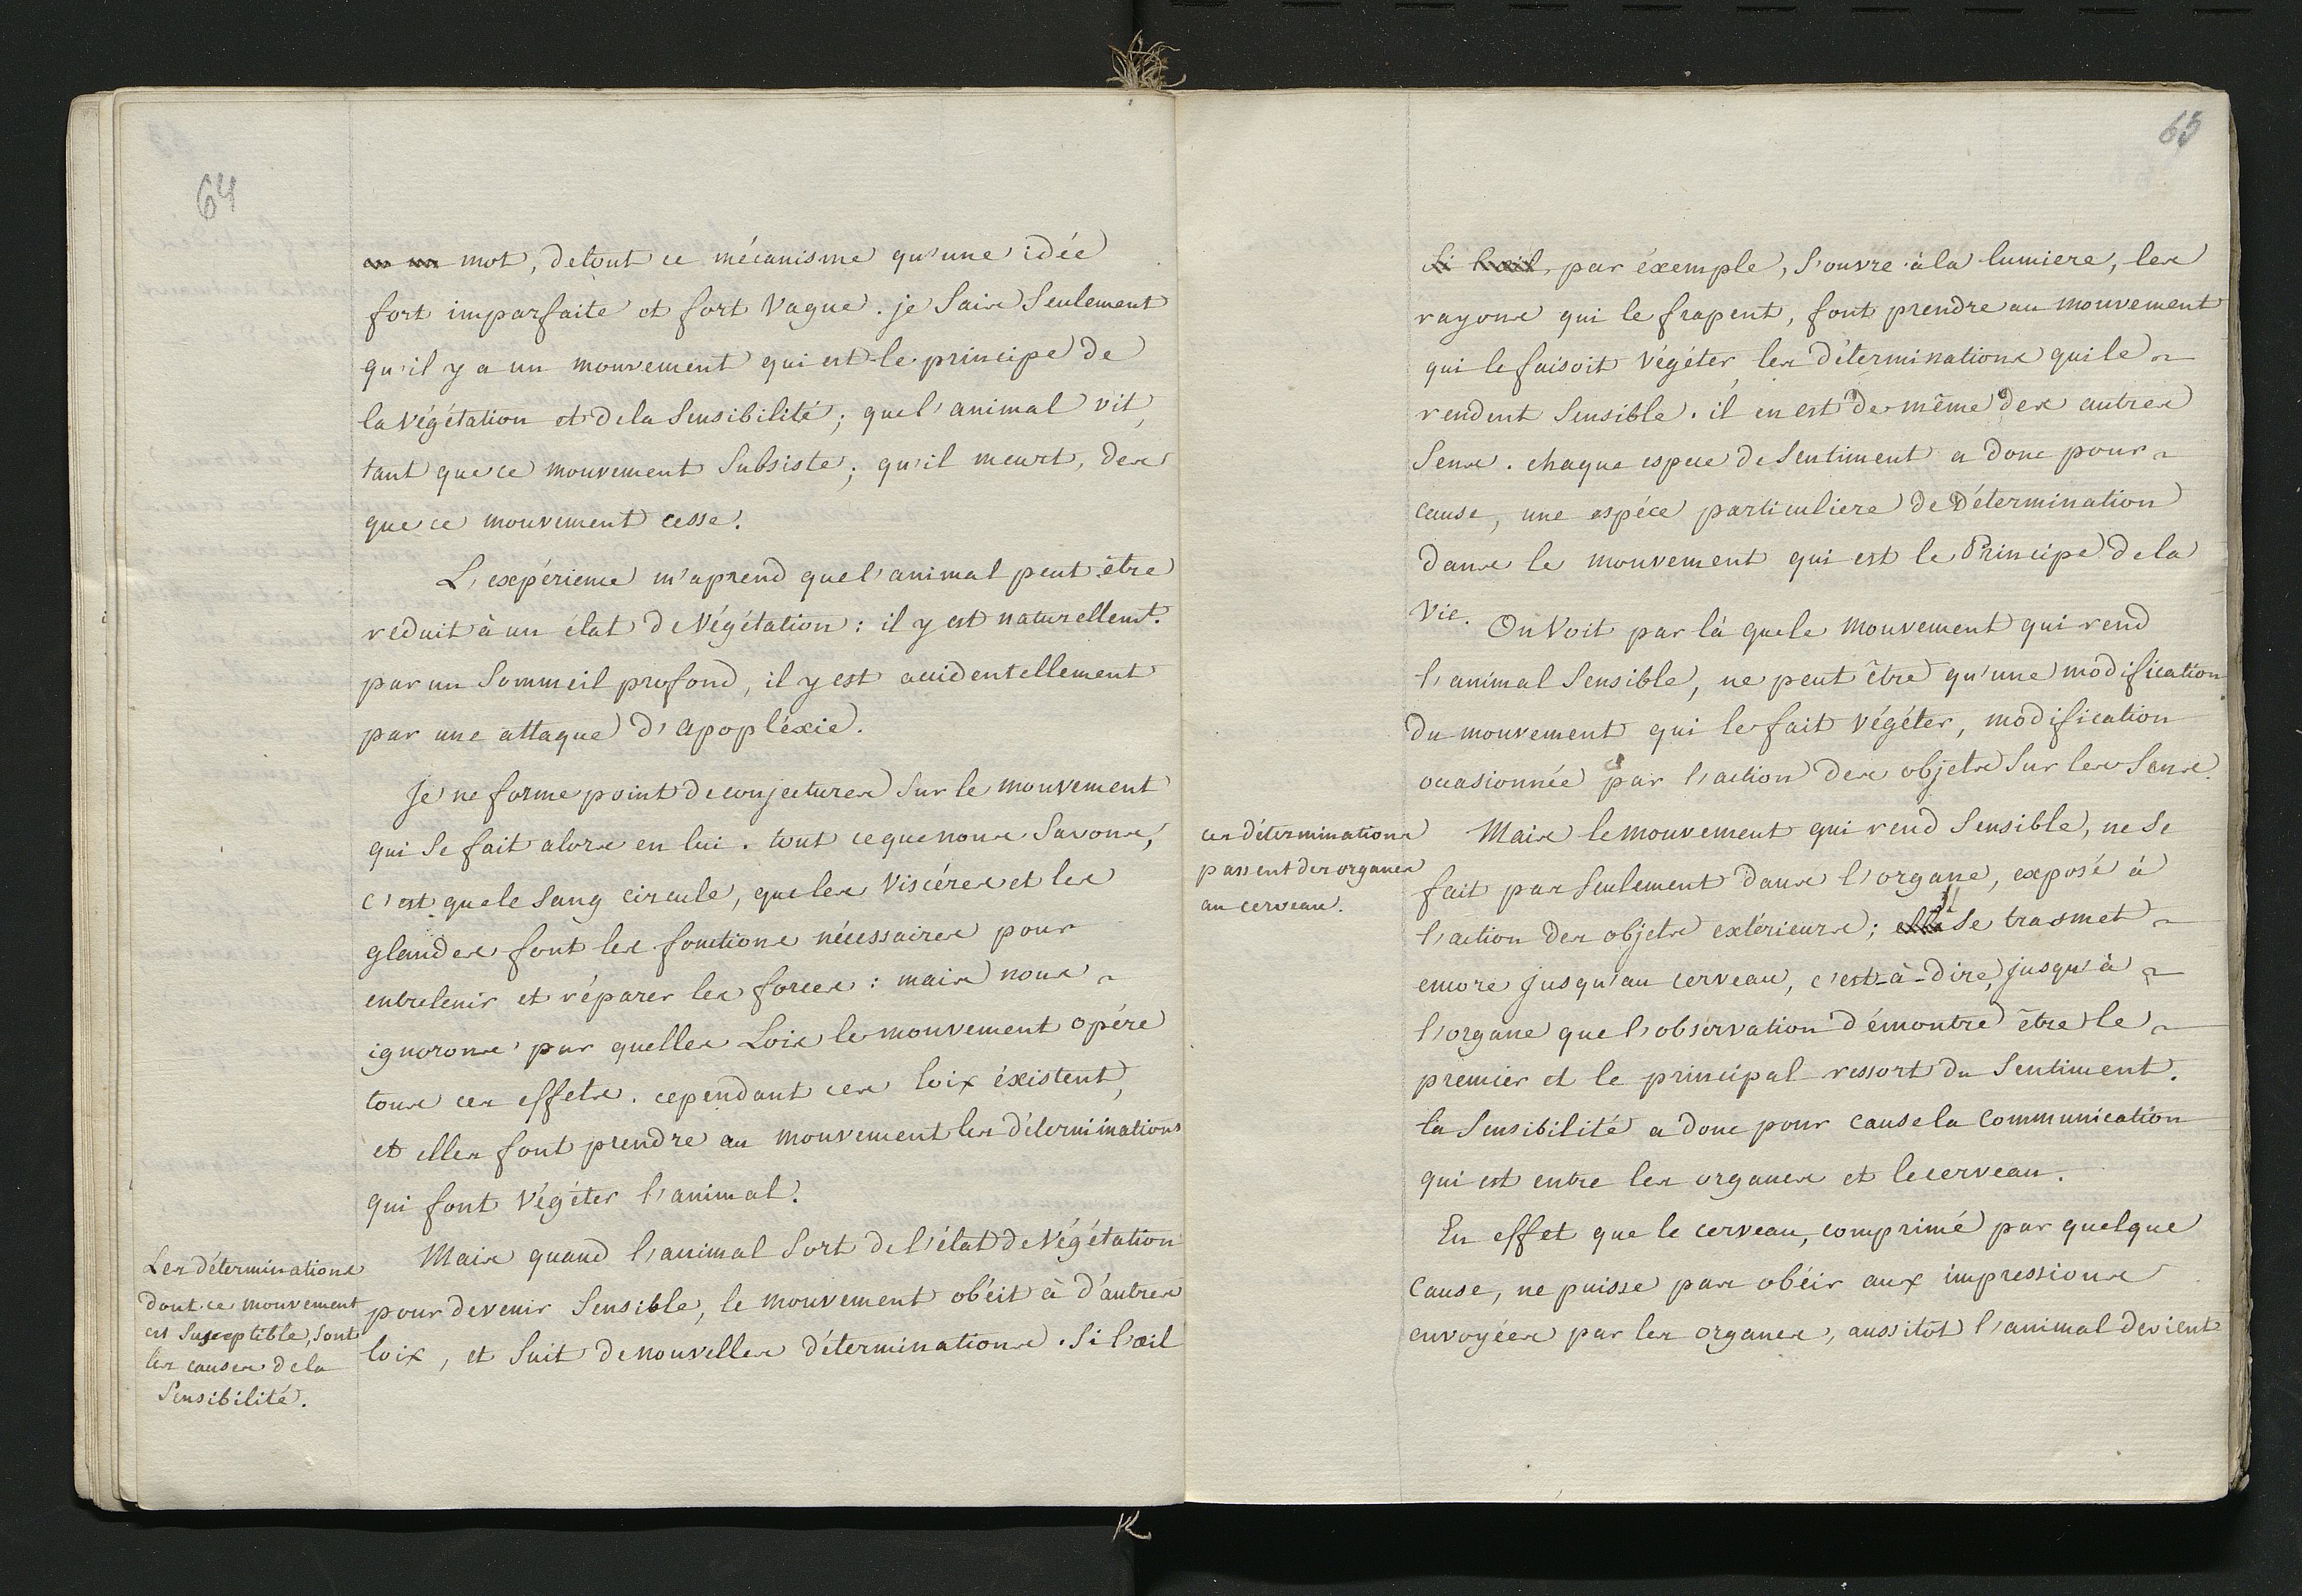 64
~~en un~~ mot, detout ce mécanisme qu'une idée
fort imparfaite et fort vague. je Sais Seulement
qu'il y a un mouvement qui est le principe de
la végétation et dela Sensibilité; quel'animal vit,
tant quece mouvement Subsiste; qu'il meurt, des
quece mouvement cesse.
L'expérience m'aprend quel'animal peut être
réduit à un état de végétation: il y est naturellemt.
par un Sommeil profond, il y est accidentellement
par une attaque d'apopléxie.
Je ne forme point deconjectures Sur le mouvement
qui Se fait alors en lui. tout cequenous Savons,
c'est quele Sang circule, queles viscéres et les
glandes font les fonctions nécessaires pour
entretenir et réparer les forces: mais nous
ignorons par quelles Lois le mouvement opére
tous ces effets. cependant ces loix éxistent,
et elles font prendre au mouvement les déterminations
qui font végéter l'animal.
Mais quand l'animal Sort de l'état de végétation
pour devenir Sensible, le mouvement obéit à d'autres
loix, et Suit denouvelles déterminations. Si l'œil
Les déterminations
dont ce mouvement
est Susceptible, Sont
les causes dela
Sensibilité.
65
~~Si l'œil~~, par éxemple, S'ouvre àla lumiere, les
rayons qui le frapent, font prendre au mouvement
qui le faisoit végéter les déterminations quile
rendent Sensible. il en est de même des autres
Sens. chaque espece de Sentiment a donc pour
cause, une espéce particuliere de détermination
dans le mouvement qui est le Principe dela
Vie.
On voit par là quele mouvement qui rend
l'animal Sensible, ne peut être qu'une modification
du mouvement qui le fait végéter, modification
occasionnée par l'action des objets Sur les Sens.
ces déterminations
passent des organes
au cerveau.
Mais lemouvement qui rend Sensible, ne Se
fait pas Seulement dans l'organe, exposé à
l'action des objets extérieurs; ~~elle~~ il Se trasmet
encore jusqu'au cerveau, c'est-à-dire, jusqu'à
l'organe que l'observation démontre être le
premier et le principal ressort du Sentiment.
la Sensibilité a donc pour causela communication
qui est entre les organes et lecerveau.
En effet que le cerveau, comprimé par quelque
cause, ne puisse pas obéir aux impressions
envoyées par les organes, aussitôt l'animal devient